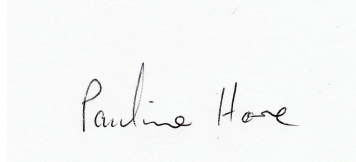 Pauline Hore